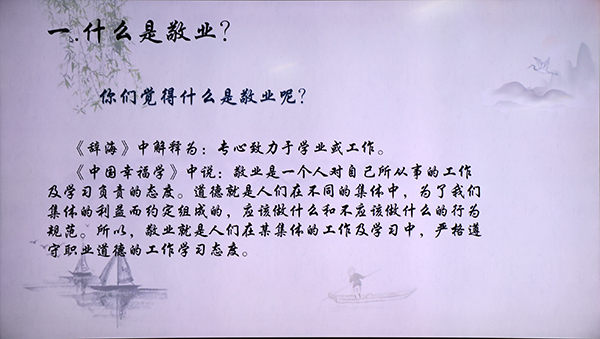 一.什么是敬业？
你们觉得什么是敬业呢？
《辞海》中解释为：专心致力于学业或工作。
《中国幸福学》中说：敬业是一个人对自己所从事的工作
及学习负责的态度。道德就是人们在不同的集体中，为了我们
集体的利益而约定组成的，应该做什么和不应该做什么的行为
规范。所以，敬业就是人们在某集体的工作及学习中，严格遵
守职业道德的工作学习态度。